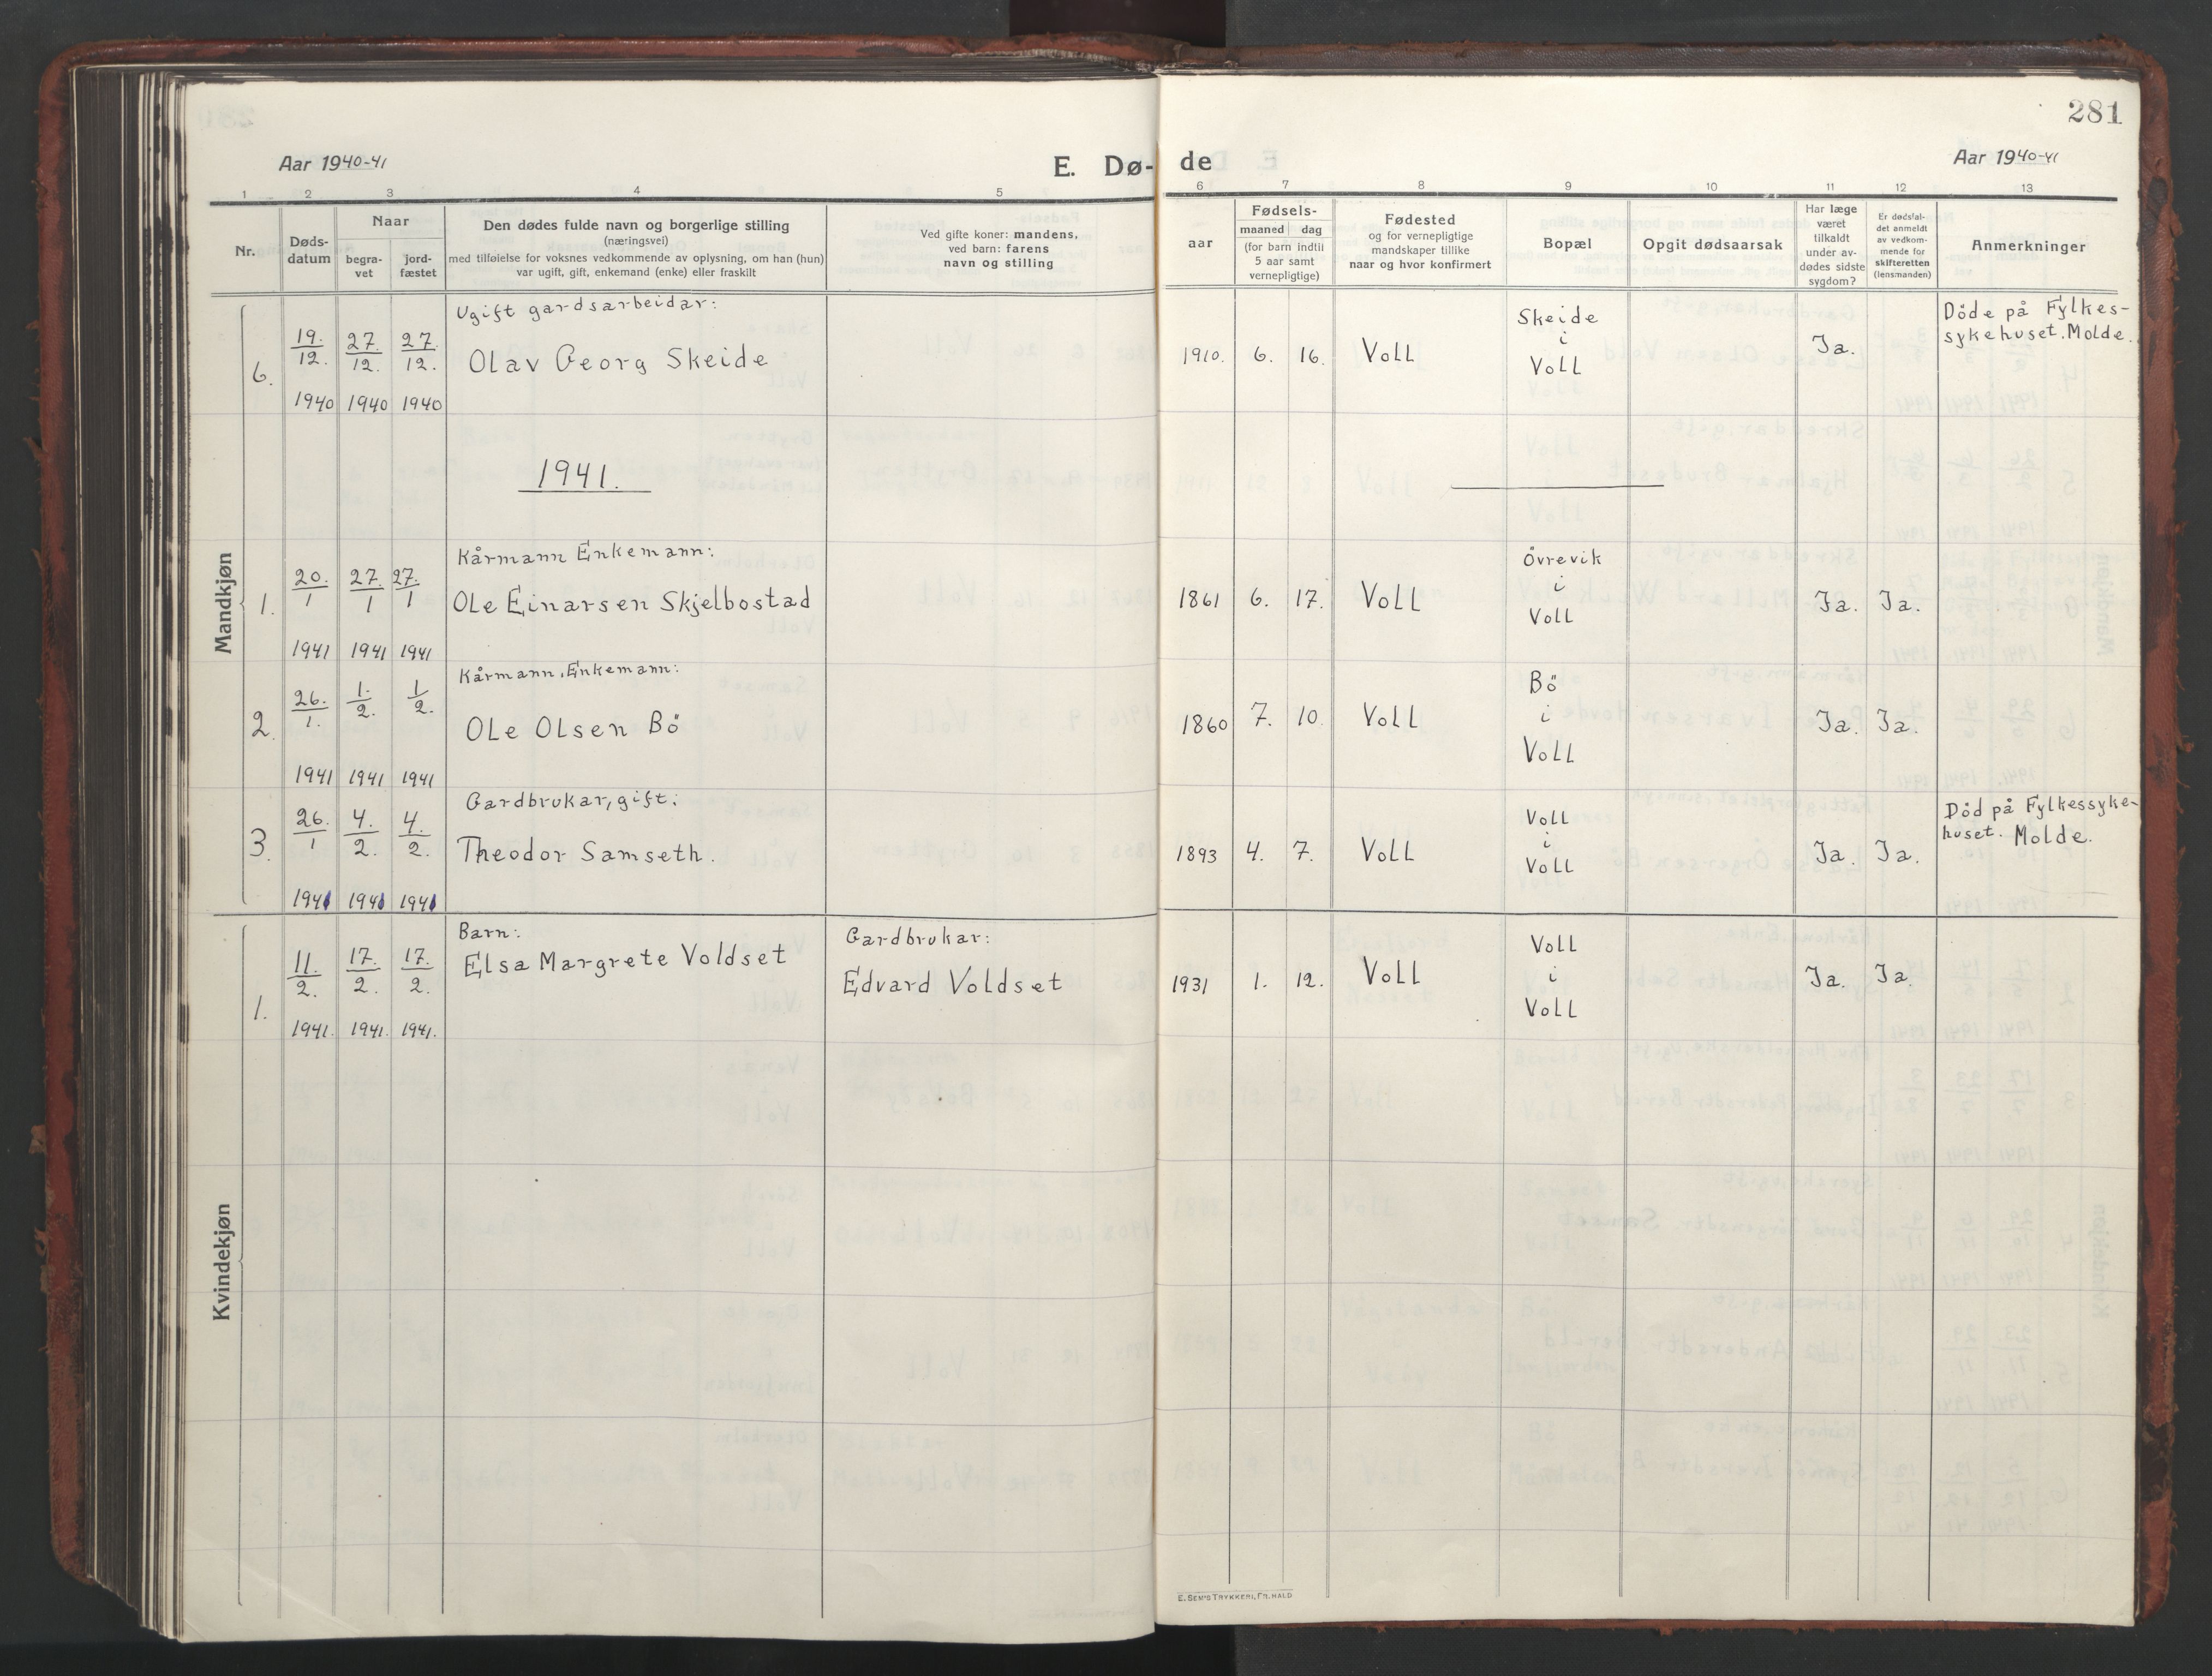 281
Aar 1940-41
E. Dø-
de
Aar 1940-41
1 2 3 4 5 6 7 8 9 10 11 12 13
Nr.
Døds-
datum
Naar
begra-
vet
jord-
fæstet
Den dødes fulde navn og borgerlige stilling
(næringsvei)
med tilføielse for voksnes vedkommende av oplysning, om han (hun)
var ugift, gift, enkemand (enke) eller fraskilt
Ved gifte koner: mandens,
ved barn: farens
navn og stilling
aar
Fødsels-
maaned dag
(for barn indtil
5 aar samt
vernepligtige)
Fødested
og for vernepligtige
mandskaper tillike
naar og hvor konfirmert
Bopæl
Opgit dødsaarsak
Har læge
været
tilkaldt
under av-
dødes sidste
sygdom?
Er dødsfal-
det anmeldt
av vedkom-
mende for
skifteretten
(lensmanden)
Anmerkninger
Mandkjøn
6.
19./12. 1940
27./12. 1940
27./12. 1940
Ugift gardsarbeidar:
Olav Georg Skeide
1910. 6. 16. Voll
Skeide
i
Voll
Ja.
Döde på Fylkes-
sykehuset. Molde.
1941.
1.
20./1 1941
27./1 1941
27./1 1941
Kårmann Enkemann:
Ole Einarsen Skjelbostad
1861 6. 17. Voll
Övrevik
i
Voll
Ja. Ja.
2.
26./1. 1941
1./2. 1941
1/2. 1941
Kårmann, Enkemann:
Ole Olsen Bö
1860 7. 10. Voll
Bö
i
Voll
Ja. Ja.
3.
26./1 1941
4./2. 1941
4./2. 1941
Gardbrukar, gift:
Theodor Samseth.
1893 4. 7. Voll
Voll
i
Voll
Ja. Ja.
Död på Fylkessyke-
huset. Molde.
Kvindekjøn
1.
11./2. 1941.
17./2. 1941.
17./2. 1941.
Barn:
Elsa Margrete Voldset
Gardbrukar:
Edvard Voldset
1931 1. 12. Voll
Voll
i
Voll
Ja. Ja.
E. SEM'S TRYKKERI, FR.HALD